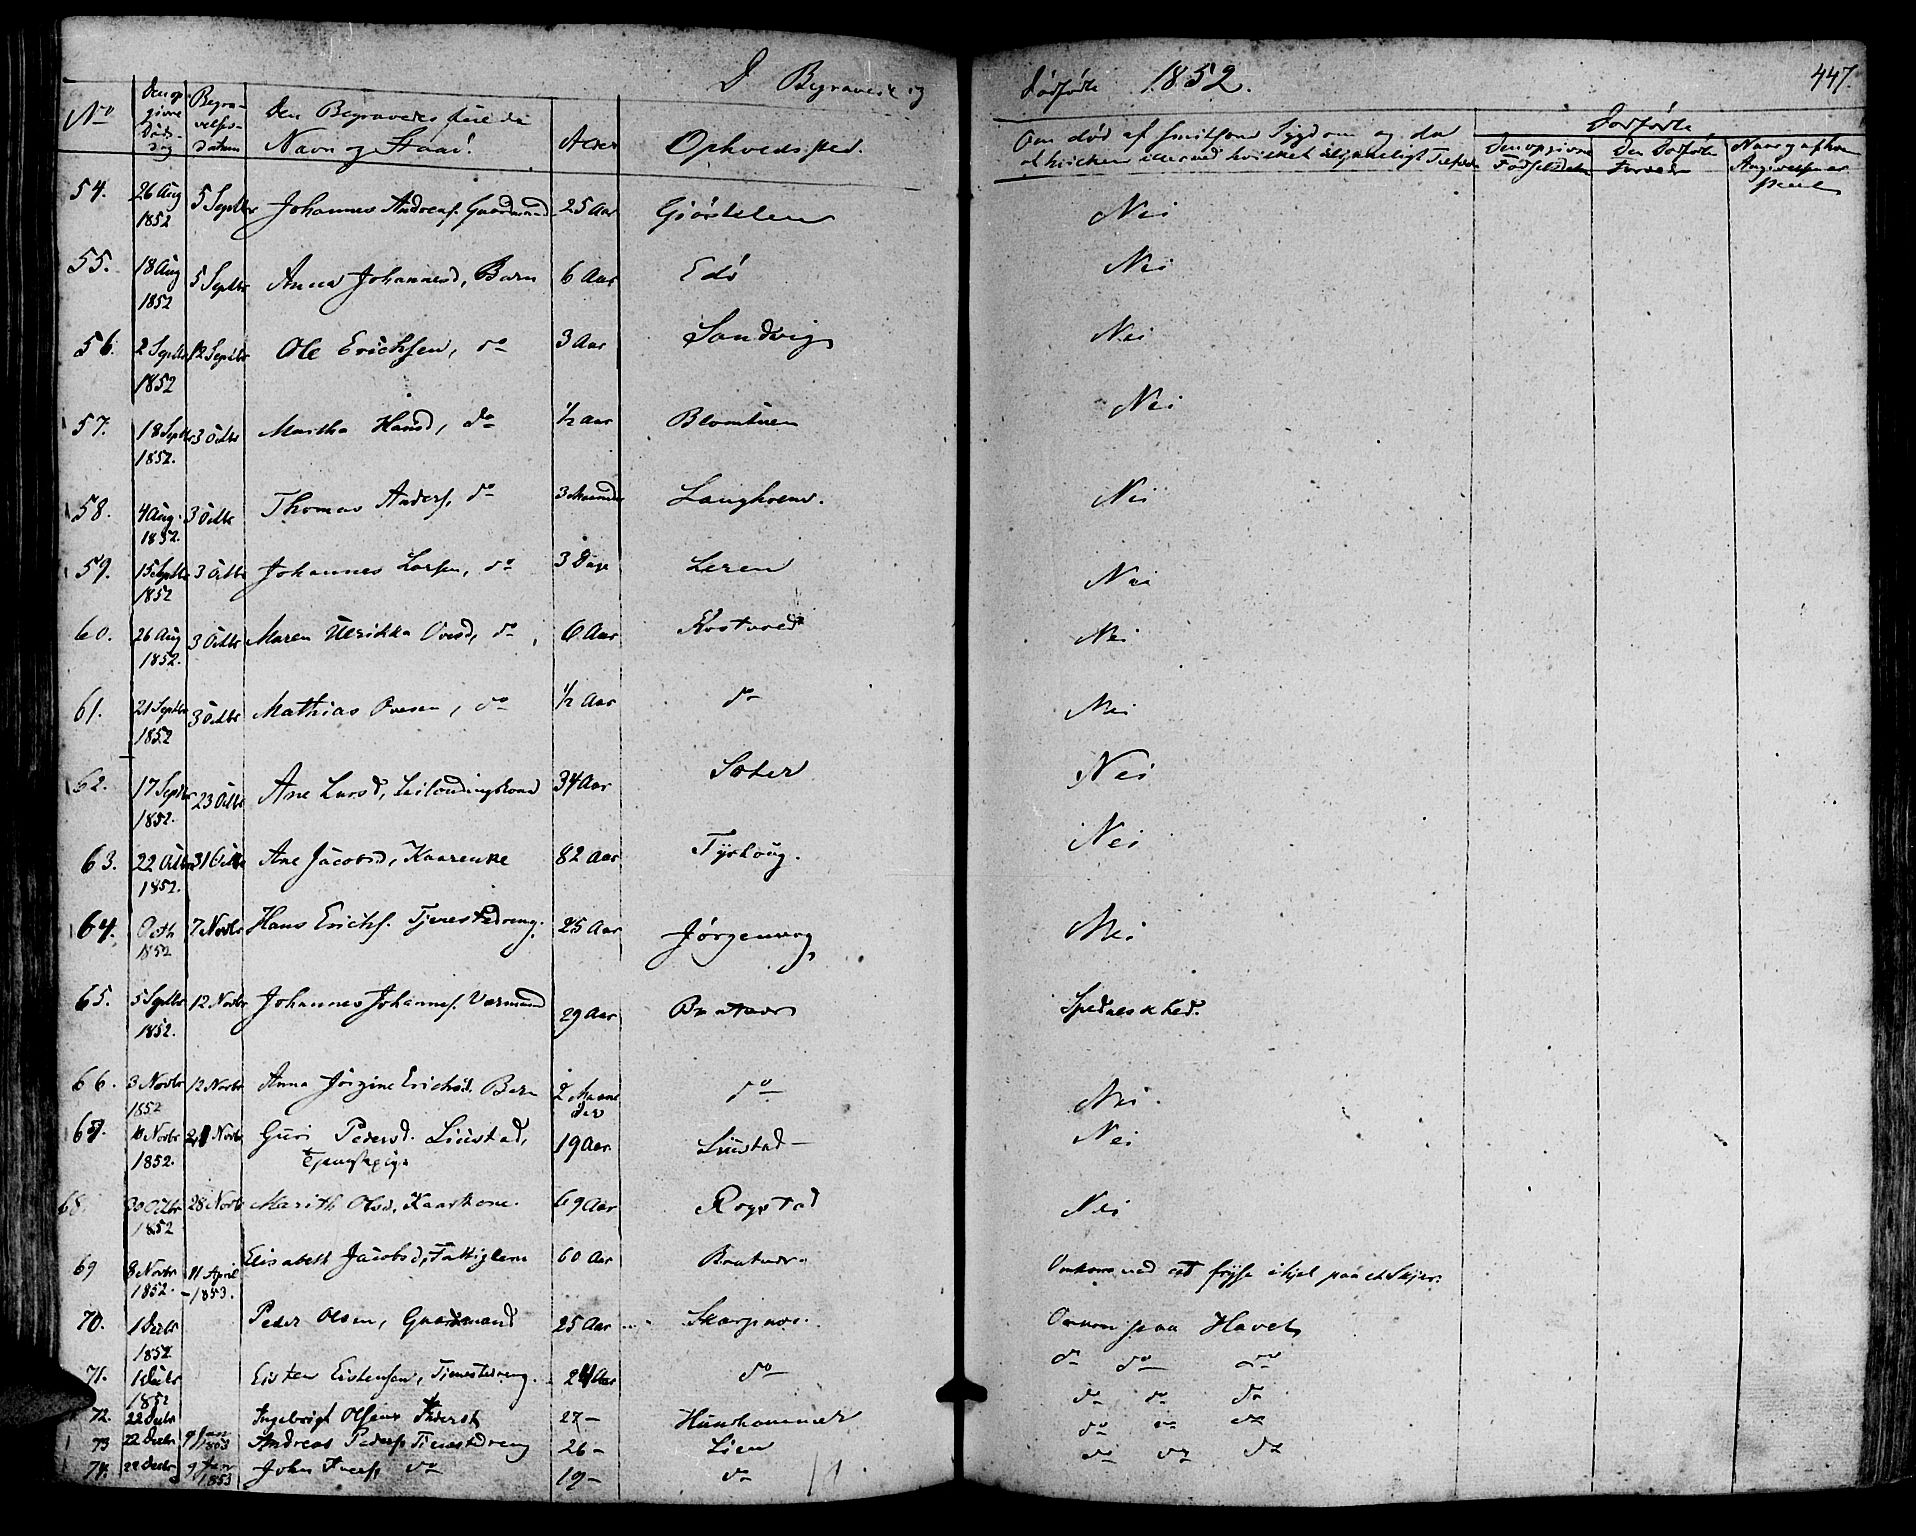 D Begravede og Dødfødte 1852. 447.
No Den opgivne Dødsdag Begravelses-datum Den Begravedes fulde Navn og Stand. Alder Opholdssted. Om død af smitsom Sygdom og da af hvilken eller ved hvilket ulykkeligt Tilfælde Dødfødte Den opgivne Fødselsdatum Den Dødfødtes Forældre
54. 26 Aug 1852 5 Septbr Johannes Andreas. Gaardmand 25 Aar Nei
55. 18 Aug 1852 5 Septbr Anna Johannesd, Barn 6 Aar Edø Nei
56. 2 Septbr 1852 12 Septbr Ole Erichsen, do 3 Aar Sandvig Nei
57. 18 Septbr 1852. 3 Octbr Martha Hansd, do 1/2 Aar Nei
58. 4 Aug. 1852. 3 Octbr Thomas Anders. do 3 Maaneder Langhoens. Nei
59. 15 Septbr 1852 3 Octbr Johannes Larsen, do 3 Dage Leren Nei
60. 26 Aug 1852. 3 Octbr Maren Ulrikka Ovesd, do 6 Aar Nei
61. 21 Septbr 1852 3 Octbr Mathias Ovesen, do 1/2 Aar do Nei
62. 17 Septbr 1852. 23 Octbr Ane Larsd, Leilændingskone 34 Aar Nei
63. 22 Octbr 1852. 31 Octbr Ane Jacobsd, Kaarenke 82 Aar Tyrhoug. Nei
64. Octb 1852 7 Novbr Hans Erichs. Tjenestedreng. 25 Aar Jørgenvog Nei
65. 5 Septbr 1852. 12 Novbr Johannes Johannes. 29 Aar Bratvær Spedalskhed.
66. 3 Novbr 1852 12 Novbr Anna Jørgine Erichsd. Barn 2 Maaneder do Nei.
67. 10 Novbr 1852. 21 Novbr Guri Pedersd. Liustad,
Tjenestepige 19 Aar Liustad Nei
68. 30 Octbr 1852 28 Novbr Marith Olsd, Kaarkone. 69 Aar Rogstad Nei
69 8 Novbr 1852. 11 April 1853. Elisabeth Jacobsd, Fattiglem 60 Aar Bratvær. Omkom ved at fryse ihjel paa et Skjær.
70. 1 Decbr 1852 Peder Olsen, Gaardmand 25 Aar Omkom paa Havet
71. 1 Decbr 1852 Eisten Eistensen, Tjenestedreng. 24 Aar do do do do
72. 22 Decbr Ingebrigt Olsens 27 – Hunhammer do do do
73 22 Decbr 9 Jan 1853 Andreas Peders Tjenestedreng 26 – Lien do do do
74. 22 Decbr 9 Jan 1853 John Ivers. do 19 – do do do do